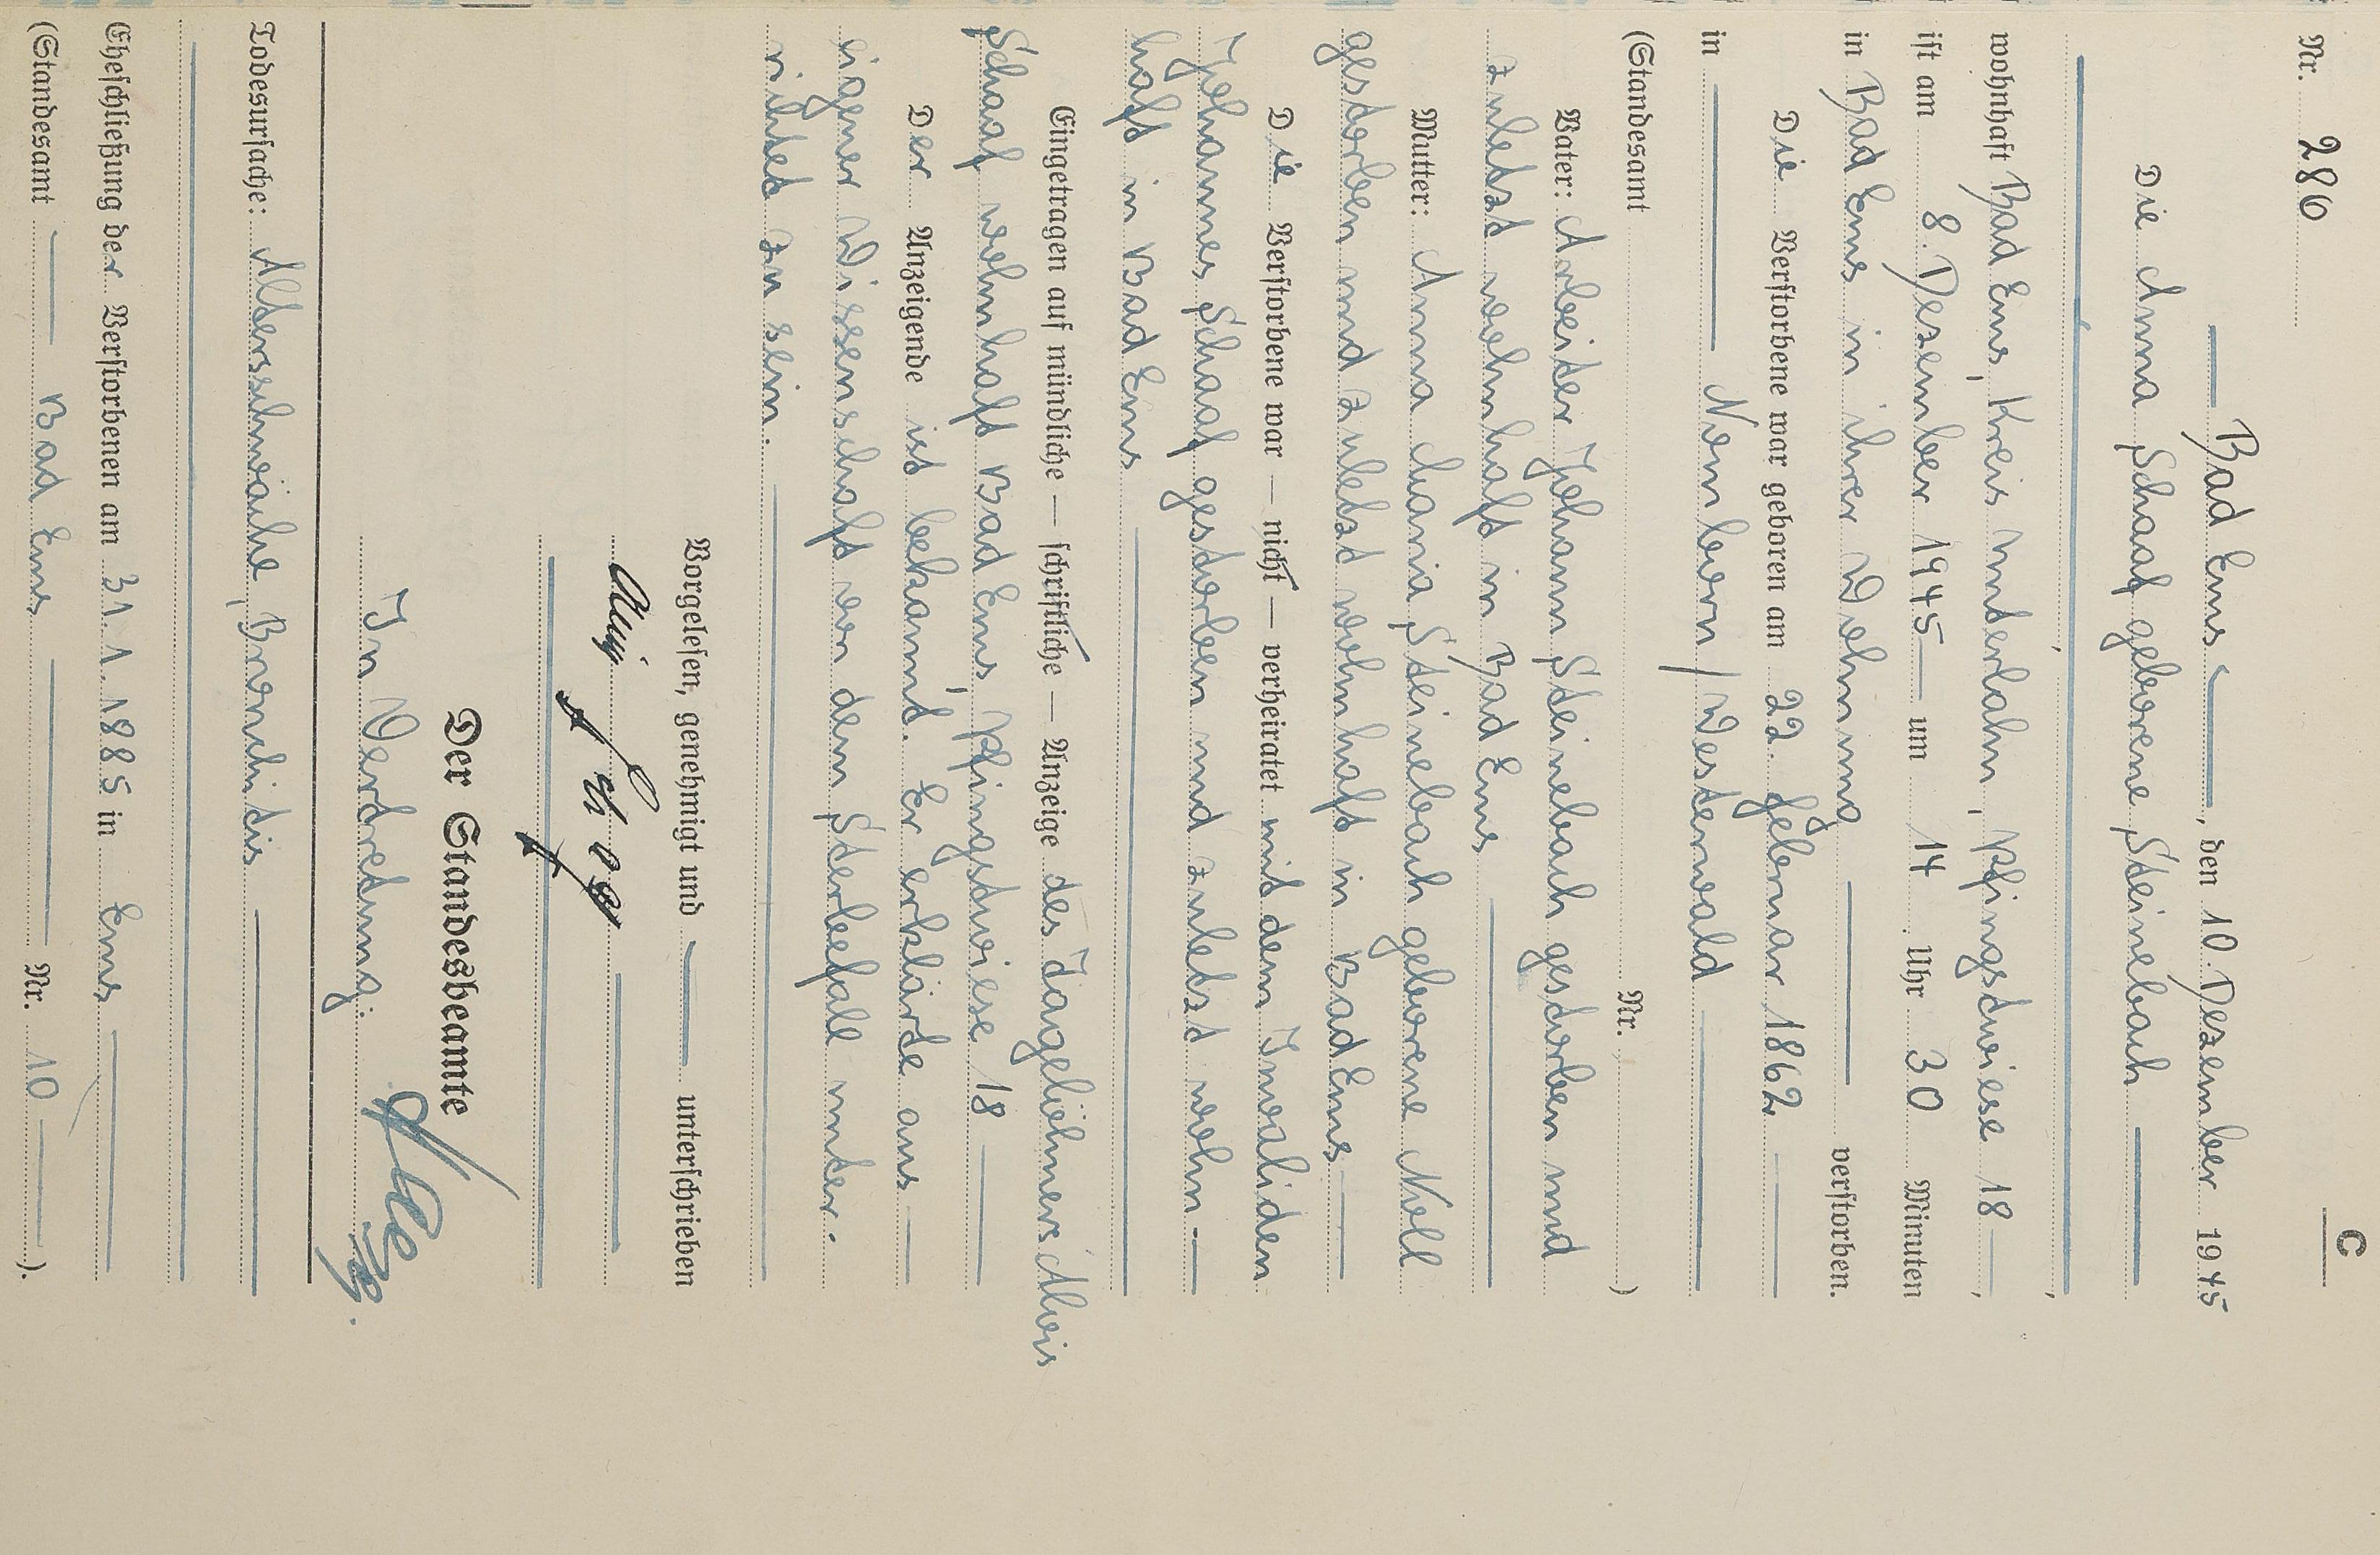 C
Nr. 286
Bad Ems, den 10. Dezember 1945
Die Anna Schaaf geborene Steinebach
wohnhaft Bad Ems, Kreis Unterlahn, Pfingstwiese 18,
ist am 8. Dezember 1945 um 14 Uhr 30 Minuten
in Bad Ems in ihrer Wohnung verstorben.
Die Verstorbene war geboren am 22. Februar 1862
in Nomborn / Westerwald
(Standesamt Nr. )
Vater: Arbeiter Johann Steinebach gestorben und
zuletzt wohnhaft in Bad Ems
Mutter: Anna Maria Steinebach geborene Noll
gestorben und zuletzt wohnhaft in Bad Ems
Die Verstorbene war — nicht — verheiratet mit dem Invaliden
Johannes Schaaf gestorben und zuletzt wohn-
haft in Bad Ems
Eingetragen auf mündliche — schriftliche — Anzeige des Tagelöhners Alois
Schaaf wohnhaft Bad Ems, Pfingstwiese 18
Der Anzeigende ist bekannt. Er erklärte aus
eigener Wissenschaft von dem Sterbefall unter.
richtet zu sein.
Vorgelesen, genehmigt und unterschrieben
Der Standesbeamte
In Vertretung:
Todesursache: Altersschwäche, Bronchitis
Eheschließung der Verstorbenen am 31. 1. 1885 in Ems
(Standesamt Bad Ems Nr. 10 ).